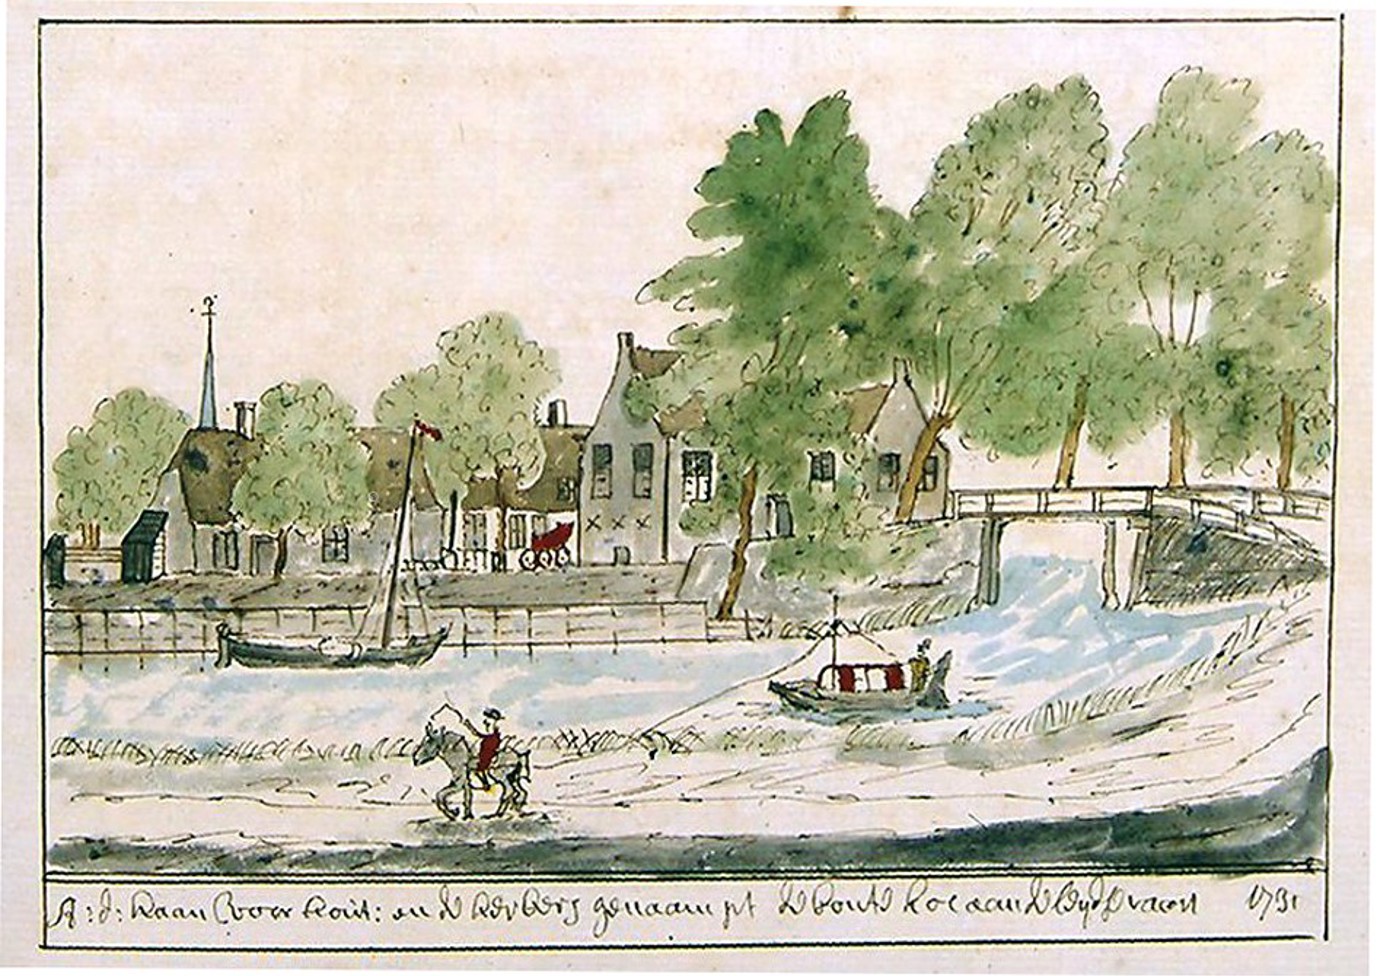 A: d: kaan voor hout: en de herberg genaampt de bonte koe aan de leydse vaart 1731